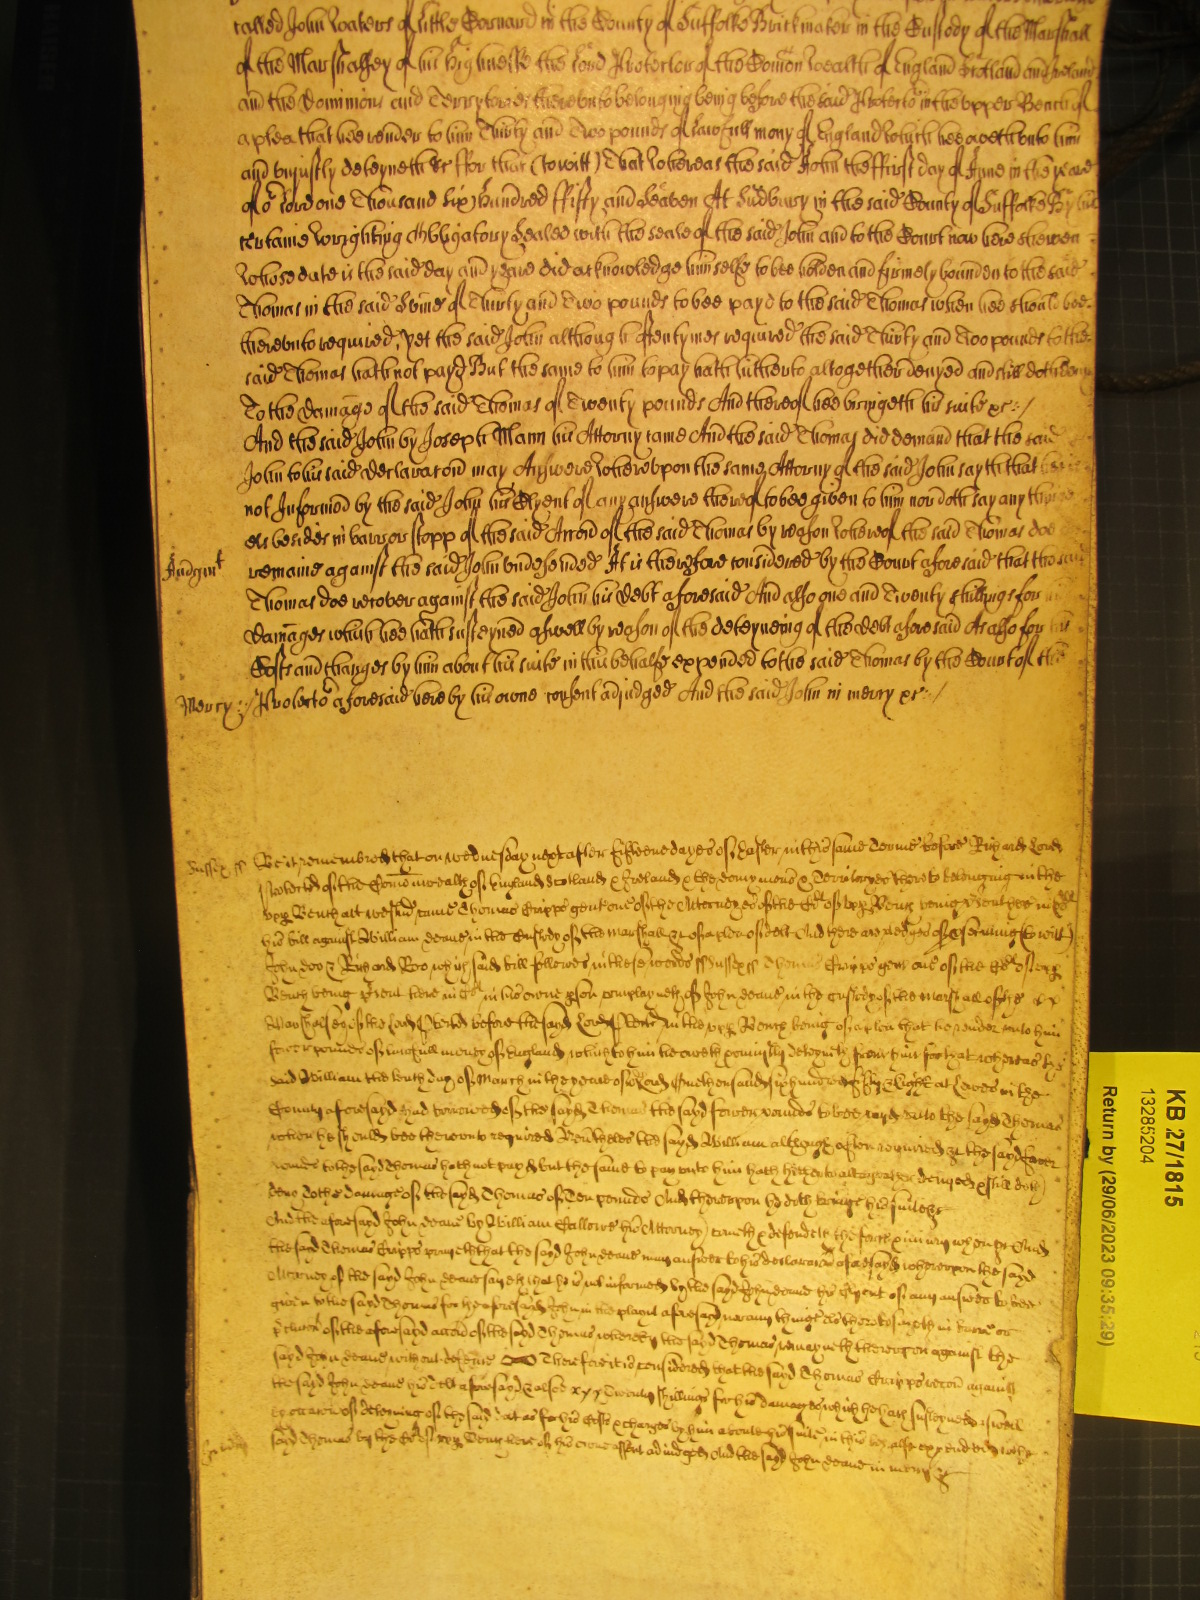 called John Waters of Little Cornard in the County of Suffolke Brickmaker in the Custody of the Marshall
of the Marshalsey of his Highnesse the Lord Protector of the Comon wealth of England Scotland and Ireland
and the Dominions and Terrytories thereunto belonging being before the said Protector in the upper Bench of
a plea that hee render to him Thirty and Two pounds of lawfull mony of England which hee oweth unto him
and uniustly deteyneth &c ffor that (to witt) That whereas the said John the ffirst day of June in the yeare
of or Lord one Thousand Six Hundred ffifty and Seaven At Sudbury in the said County of Suffolke By his
certaine wrighting Obligatory Sealed with the seale of the said John and to the Court now here shewen
whose date is the said day and yeare did acknowledge himselfe to bee holden and firmely bounden to the said
Thomas in the said Sume of Thirty and Two pounds to bee payd to the said Thomas when hee should bee
thereunto required, Yet the said John although oftentymes required the said Thirty and Two pounds to the
said Thomas hath not payd But the same to him to pay hath hitherto altogether denyed and still doth deny
To the Damage of the said Thomas of Twenty pounds And thereof hee bringeth his suite &c:/
And the said John by Joseph Mann his Attorny came And the said Thomas did demand that the said
John to his said Declaracon may Answere Whereupon the same Attorny of the said John sayth that hee is
not Informed by the said John his Clyent of any answere thereof to bee given to him nor doth say any thinge
els besides in barr or stopp of the said Accon of the said Thomas by reason whereof the said Thomas doe
Judgmt remaine against the said John undefended It is therefore considered by the Court aforesaid that the said
Thomas doe recover against the said John his Debt aforesaid And also one and Twenty shillings for his
Damages which hee hath susteyned aswell by reason of the deteyneing of the debt aforesaid As also for his
Costs and charges by him about his suite in this behalfe expended to the said Thomas by the Court of the
Mercy:/ Protector aforesaid here by his owne consent adjudged And the said John in mercy &c:/
Sussex ss Be it remembred that on wednesday next after fifteene dayes of Easter in this same Terme before Richard Lord
Protector of the Comonwealth of England Scotland & Ireland & the domynions & Territoryes thereto belonging in the
upp Bench att westmr came Thomas Cripps gent one of the Atterneyes of the Crt of upp Bench being present here in
his bill against William deane in the Custody of the marshall &c of a plea of debt And there are pledges of prosecuting (to witt)
John doo & Richard Roo which said bill followes in these words ss Sussex ss Thomas Cripps gent one of the Crt of upp
Bench being present here in Crt in his owne pson complayneth of John deane in the custody of the Marshall of the
Marshalsey of the Lord Protector before the sayd Lord Protector in the upp Bench being of a plea that he render unto him
fower pounds of lawfull money of England which to him he oweth & uniustly deteyneth from him for that whereas the
said William the tenth day of March in the yeare of or Lord One thousand six hundred fifty & Eight at Lewes in the
County aforesayd had borrowed of the sayd Thomas the sayd fower pounds to bee payd unto the sayd Thomas
when he should bee thereunto required Neverthelesse the sayd William although often required &c the sayd fower
pounds to the sayd Thomas hath not payd but the same to pay unto him hath hitherto altogeather denyed & still doth
deny To the damage of the sayd Thomas of Ten pounds And thereupon he doth bringe his suite &c
And the aforesayd John deane by William Gallowe his Attorney cometh & defendeth the force & iniury when &c And
the sayd Thomas Cripps prayeth that the sayd John deane may answer to his declaracon aforesayd whereupon the sayd
Attorney of the sayd John deane sayeth that he is not informed by the sayd John deane his Clyent of any answere to bee
given to the sayd Thomas for the aforesayd John in the playnt aforesayd nor any thinge els thereto sayeth in barre or
of the aforesayd accon of the sayd Thomas whereby the sayd Thomas remayneth thereupon against the
sayd John deane without defence Therefore it is considered that the sayd Thomas Cripps recover against
the sayd John deane his debt aforesayd & alsoe Twenty shillings for his damages which he hath susteyned aswell
by occasion of deteining of the sayd debt as for his Costs & charges by him about his suite in this behalfe expended to the
sayd Thomas by the Crt of upp Bench here of his owne assent adiudged And the sayd John deane in mercy &c
KB 27/1815
13285204
Return by (29/06/2023 09:35:29)